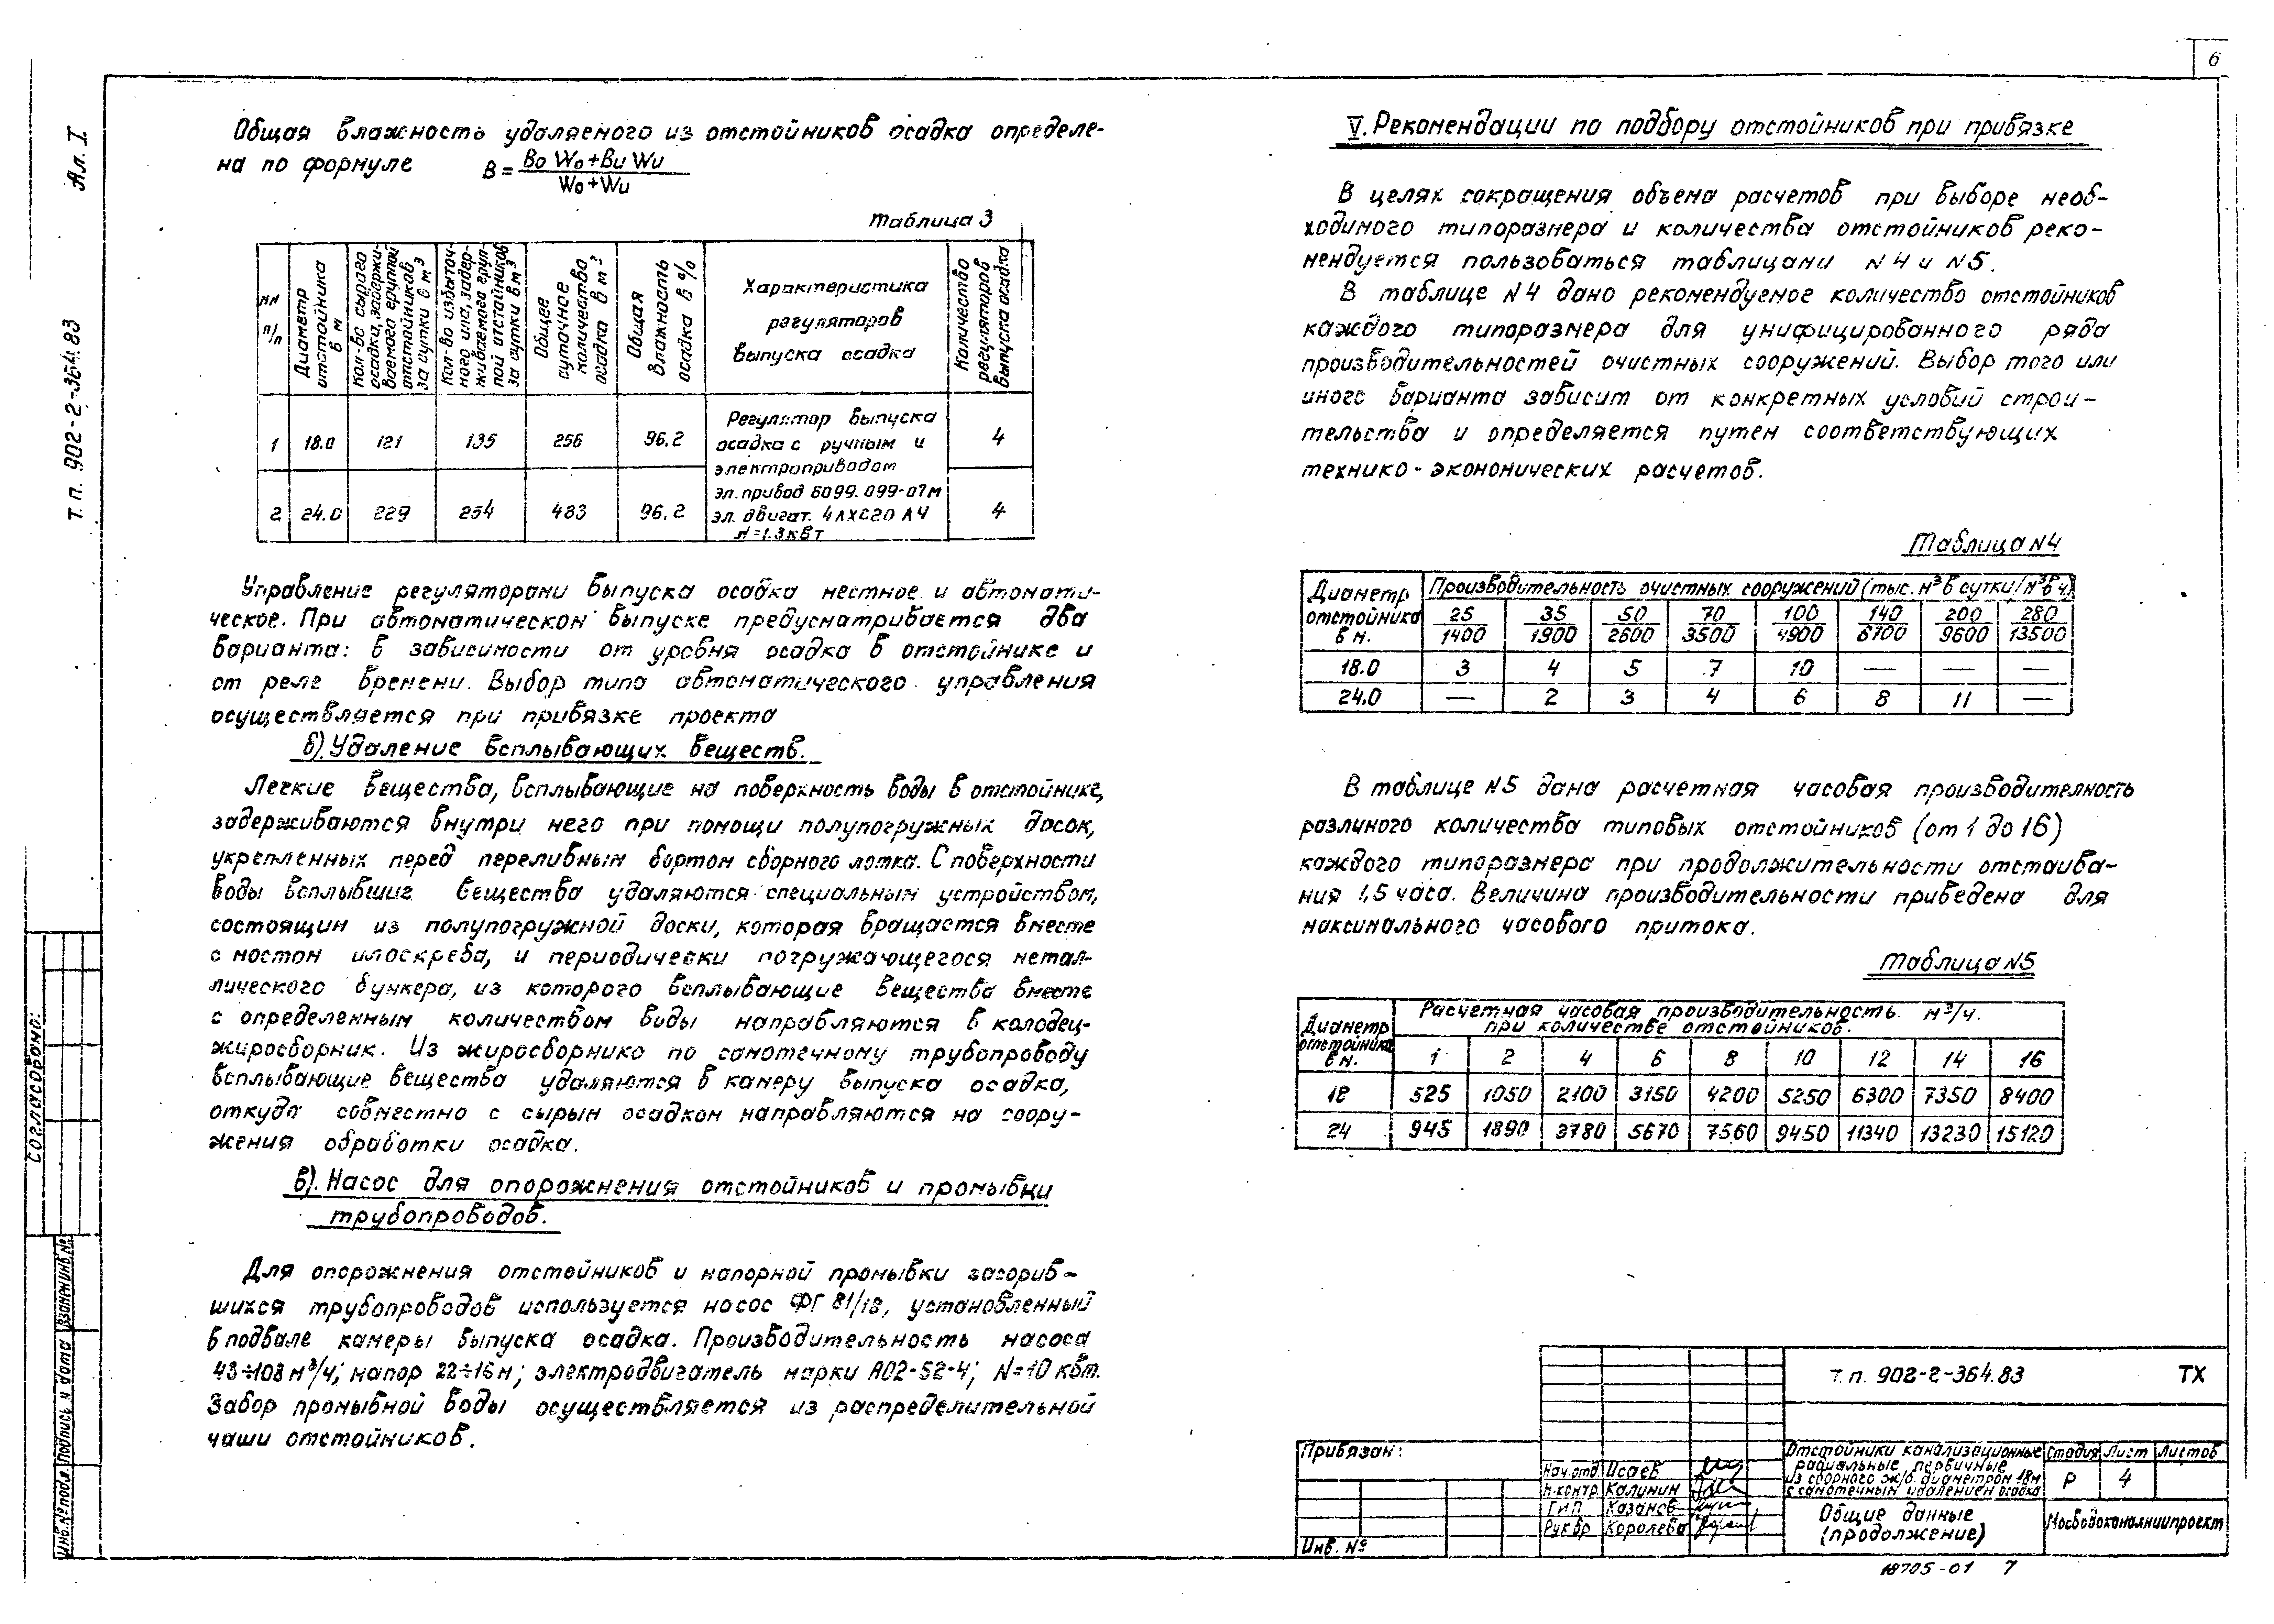 6
Ал. I
т.п. 902-2-364.83
Общая влажность удаляемого из отстойников осадка определе-
на по формуле B = (Во Wо + Ви Wи) / (Wо + Wи)
Таблица 3
нн п/п | Диаметр отстойника в м | Кол-во сырого осадка, задержи-ваемого группой отстойников за сутки в м³ | Кол-во избыточ-ного ила, задер-живаемого груп-пой отстойников за сутки в м³ | Общее суточное количество осадка в м³ | Общая влажность осадка в % | Характеристика регуляторов выпуска осадка | Количество регуляторов выпуска осадка
1 | 18.0 | 121 | 135 | 256 | 96.2 | Регулятор выпуска осадка с ручным и электроприводом | 4
2 | 24.0 | 229 | 254 | 483 | 96.2 | эл. привод Б099.099-07М эл. двигат. 4АХС20 А4 N=1.3 кВт | 4
Управление регуляторами выпуска осадка местное и автомати-
ческое. При автоматическом выпуске предусматривается два
варианта: в зависимости от уровня осадка в отстойнике и
от реле времени. Выбор типа автоматического управления
осуществляется при привязке проекта
б). Удаление всплывающих веществ.
Легкие вещества, всплывающие на поверхность воды в отстойнике,
задерживаются внутри него при помощи полупогружных досок,
укрепленных перед переливным бортом сборного лотка. С поверхности
воды всплывшие вещества удаляются специальным устройством,
состоящим из полупогружной доски, которая вращается вместе
с мостом илоскреба, и периодически погружающегося метал-
лического бункера, из которого всплывающие вещества вместе
с определенным количеством воды направляются в колодец-
жиросборник. Из жиросборника по самотечному трубопроводу
всплывающие вещества удаляются в камеру выпуска осадка,
откуда совместно с сырым осадком направляются на соору-
жения обработки осадка.
в). Насос для опорожнения отстойников и промывки
трубопроводов.
Для опорожнения отстойников и напорной промывки засорив-
шихся трубопроводов используется насос ФГ 81/18, установленный
в подвале камеры выпуска осадка. Производительность насоса
43÷108 м³/ч; напор 22÷16 м; электродвигатель марки А02-52-4; N=10 квт.
Забор промывной воды осуществляется из распределительной
чаши отстойников.
V. Рекомендации по подбору отстойников при привязке
В целях сокращения объема расчетов при выборе необ-
ходимого типоразмера и количества отстойников реко-
мендуется пользоваться таблицами N4 и N5.
В таблице N4 дано рекомендуемое количество отстойников
каждого типоразмера для унифицированного ряда
производительностей очистных сооружений. Выбор того или
иного варианта зависит от конкретных условий строи-
тельства и определяется путем соответствующих
технико-экономических расчетов.
Таблица N4
Диаметр отстойника в м. | Производительность очистных сооружений (тыс. м³ в сутки/м³ в ч)
25/1400 | 35/1900 | 50/2600 | 70/3500 | 100/4900 | 140/6700 | 200/9600 | 280/13500
18.0 | 3 | 4 | 5 | 7 | 10 | — | — | —
24.0 | — | 2 | 3 | 4 | 6 | 8 | 11 | —
В таблице N5 дана расчетная часовая производителность
разлиного количества типовых отстойников (от 1 до 16)
каждого типоразмера при продолжительности отстаива-
ния 1,5 часа. Величина производительности приведена для
максимального часового притока.
Таблица N5
Диаметр отстойника в м. | Расчетная часовая производительность м³/ч. при количестве отстойников.
1 | 2 | 4 | 6 | 8 | 10 | 12 | 14 | 16
18 | 525 | 1050 | 2100 | 3150 | 4200 | 5250 | 6300 | 7350 | 8400
24 | 945 | 1890 | 3780 | 5670 | 7560 | 9450 | 11340 | 13230 | 15120
Согласовано:
Инв.№ подл. Подпись и дата Взам.инв.№
т.п. 902-2-364.83 ТХ
Привязан:
Инв. №
Нач.отд Исаев
Н.контр Калинин
ГИП Казанов
Рук.бр Королева
Отстойники канализационные
радиальные первичные
из сборного ж/б. диаметром 18м
с самотечным удалением осадка
Стадия Лист Листов
Р 4
Общие данные
(продолжение)
Мосводоканалниипроект
18705-01 7